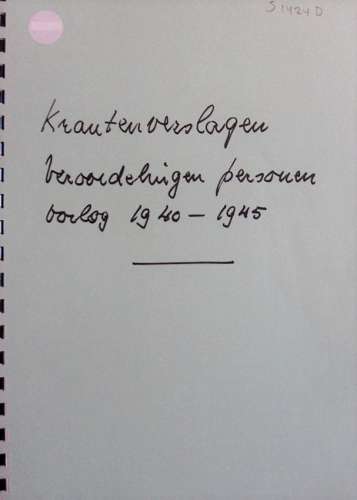 S 1424 D
Krantenverslagen
Veroordelingen personen
oorlog 1940 - 1945